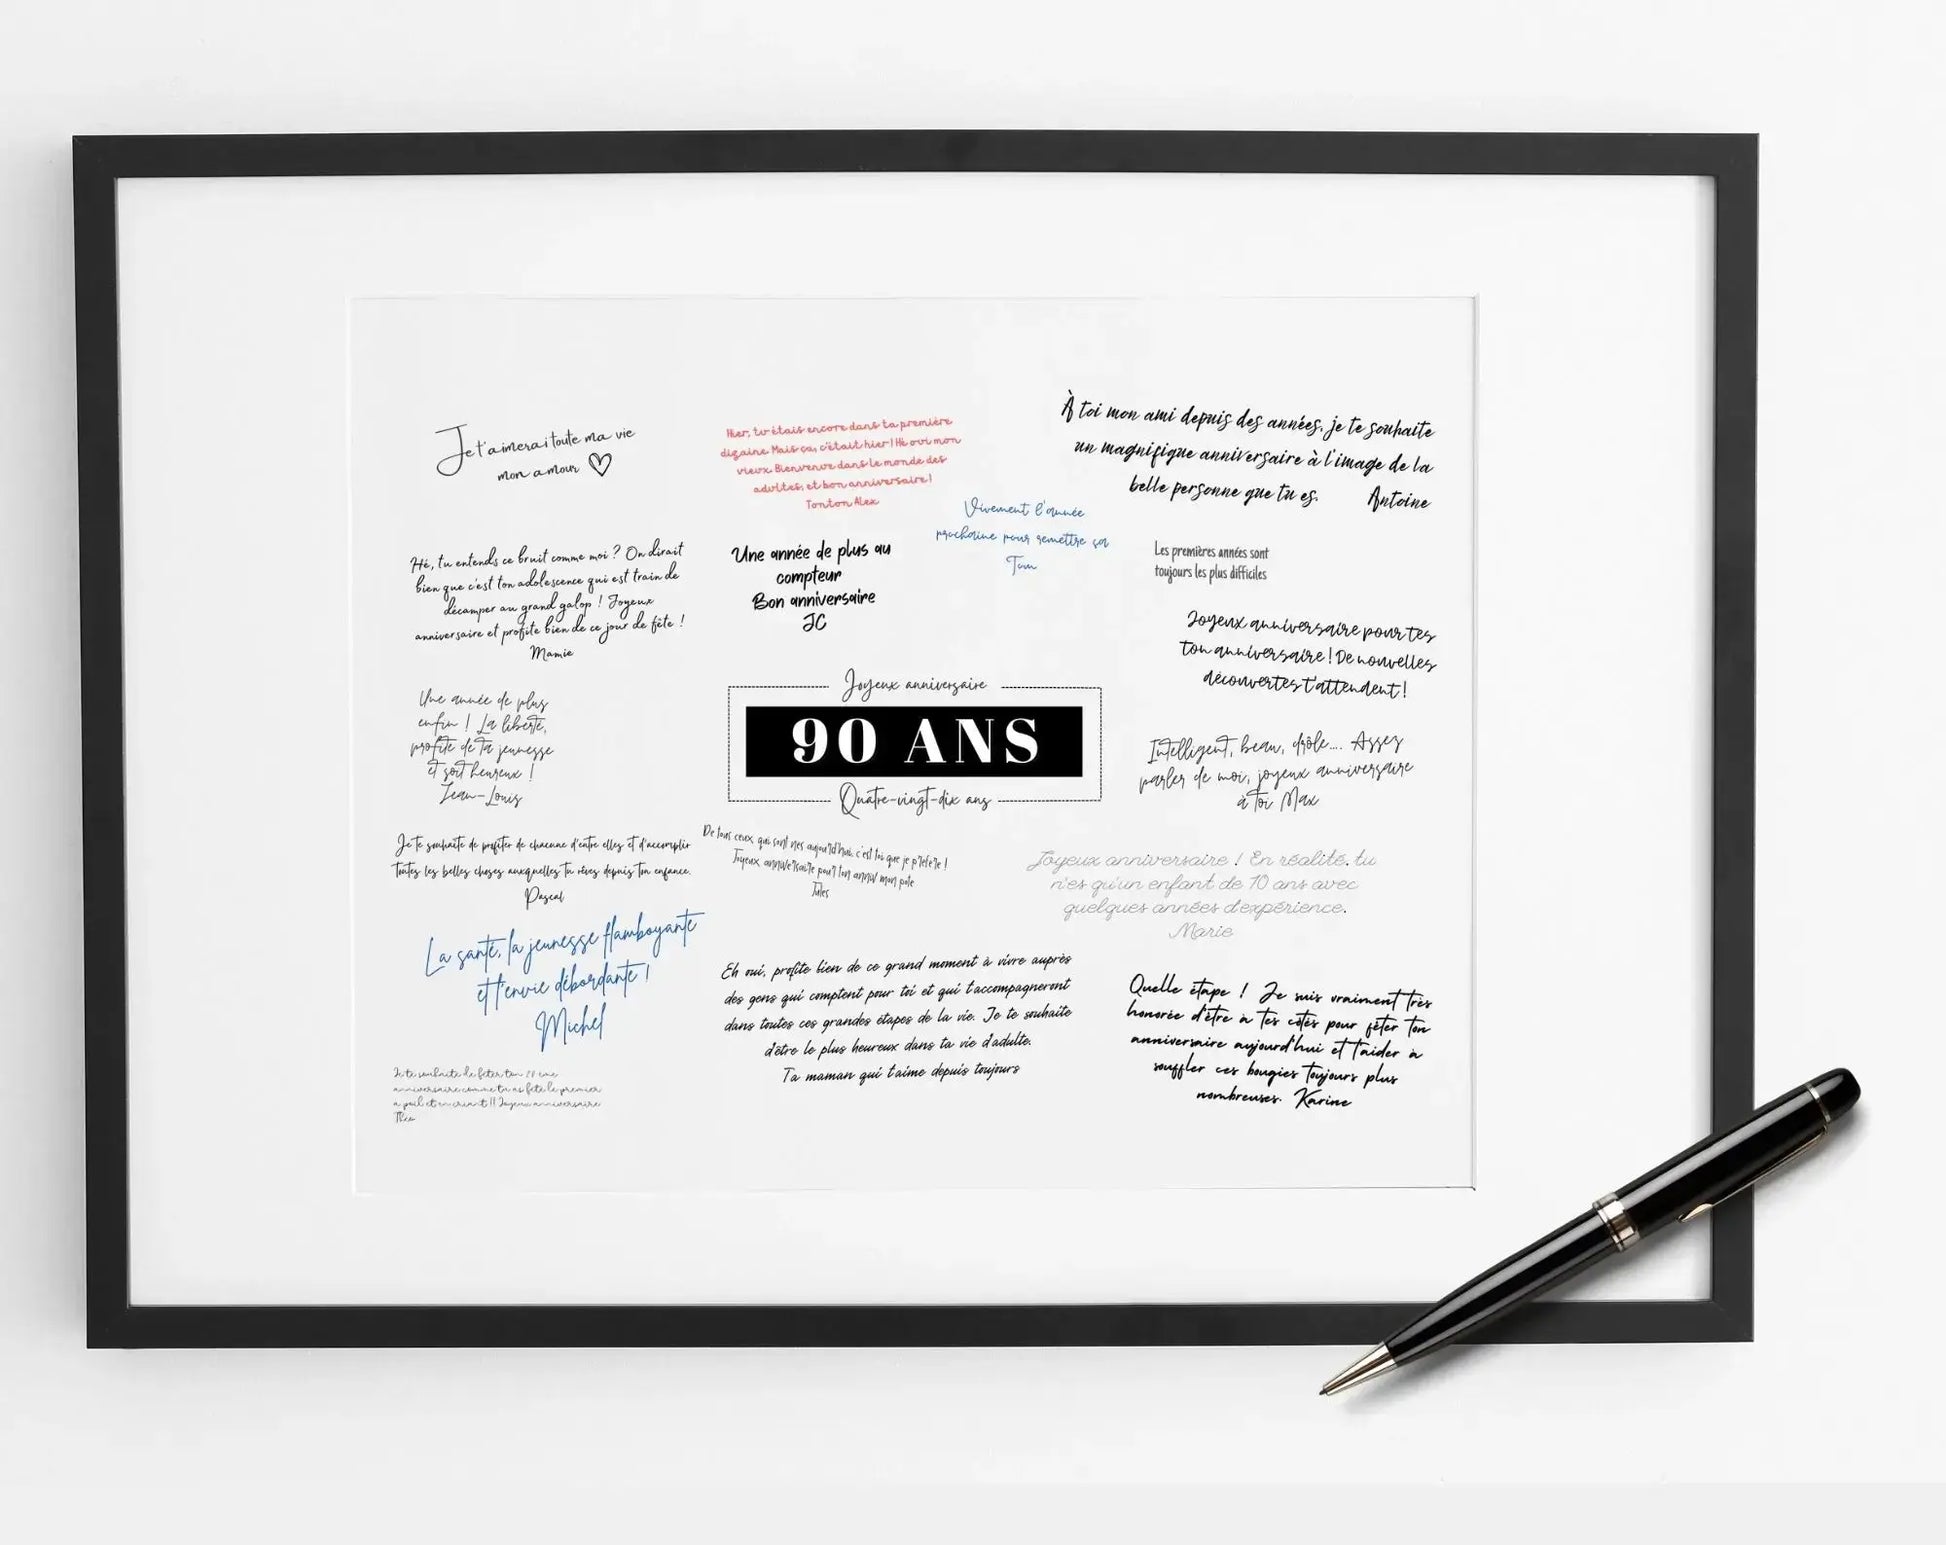 Je t'aimerai toute ma vie
mon amour
Hier, tu étais encore dans ta première
dizaine. Mais ça, c'était hier ! Hé oui mon
vieux. Bienvenue dans le monde des
adultes, et bon anniversaire !
Tonton Alex
À toi mon ami depuis des années, je te souhaite
un magnifique anniversaire à l'image de la
belle personne que tu es.
Antoine
Vivement l'année
prochaine pour remettre ça
Tom
Hé, tu entends ce bruit comme moi ? On dirait
bien que c'est ton adolescence qui est train de
décamper au grand galop ! Joyeux
anniversaire et profite bien de ce jour de fête !
Mamie
Une année de plus au
compteur
Bon anniversaire
JC
Les premières années sont
toujours les plus difficiles
Joyeux anniversaire pour tes
ton anniversaire ! De nouvelles
découvertes t'attendent !
Une année de plus
enfin ! La liberté,
profite de ta jeunesse
et soit heureux !
Jean-Louis
Joyeux anniversaire
90 ANS
Quatre-vingt-dix ans
Intelligent, beau, drôle.... Assez
parler de moi, joyeux anniversaire
à toi Max
Je te souhaite de profiter de chacune d'entre elles et d'accomplir
toutes les belles choses auxquelles tu rêves depuis ton enfance.
Pascal
De tous ceux qui sont nés aujourd'hui, c'est toi que je préfère !
Joyeux anniversaire pour ton anniv mon pote
Jules
Joyeux anniversaire ! En réalité, tu
n'es qu'un enfant de 10 ans avec
quelques années d'expérience.
Marie
La santé, la jeunesse flamboyante
et l'envie débordante !
Michel
Eh oui, profite bien de ce grand moment à vivre auprès
des gens qui comptent pour toi et qui t'accompagneront
dans toutes ces grandes étapes de la vie. Je te souhaite
d'être le plus heureux dans ta vie d'adulte.
Ta maman qui t'aime depuis toujours
Quelle étape ! Je suis vraiment très
honorée d'être à tes côtés pour fêter ton
anniversaire aujourd'hui et t'aider à
souffler ces bougies toujours plus
nombreuses. Karine
Je te souhaite de fêter ton 20 ème
anniversaire comme tu as fêté le premier
a poil et en criant !! Joyeux anniversaire
Théo